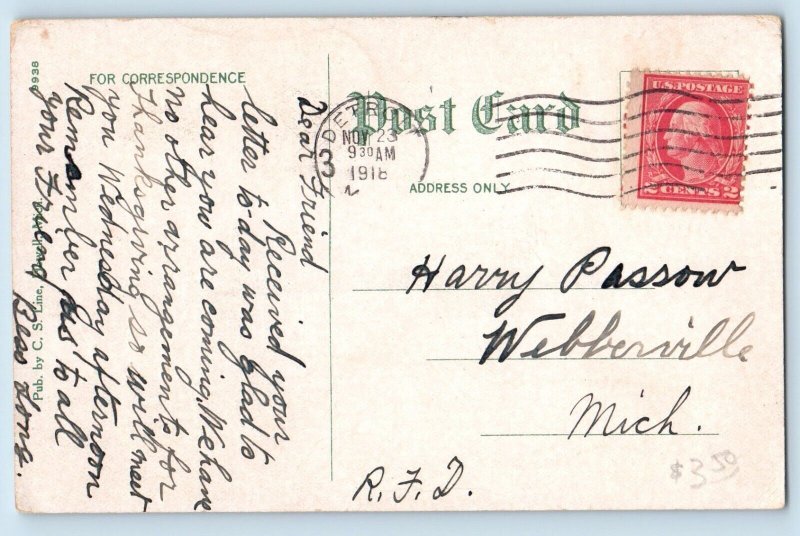 FOR CORRESPONDENCE
Post Card
ADDRESS ONLY
9938
DETR
NOV 23
930 AM
1918
3
U.S. POSTAGE
2 CENTS 2
Dear Friend
Received your
letter to-day was glad to
hear you are coming. We have
no other arrangements for
Thanksgiving so will meet
you Wednesday afternoon
Remember us to all
your Friend
Harry Passow
Webberville
Mich.
R.F.D.
$3.50
Pub. by C. S. Line,